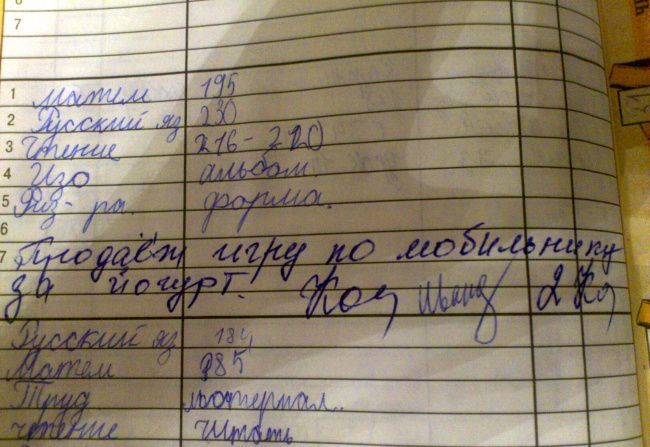 6
7
1 матем 195
2 Русский яз 230
3 Чтение 216-220
4 Изо альбом.
5 Физ-ра. форма.
6
7 Продаёж игру по мобильнику
за йогурт.
Русский яз 184
Матем 185
Труд материал..
чтение читать